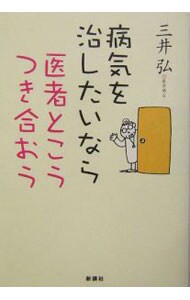 三井弘
病気を
治したいなら
医者とこう
つき合おう
新講社